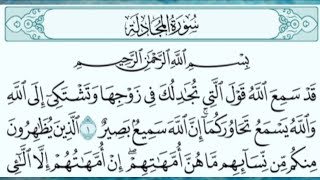 سُورَةُ المُجَادلَة
بِسْمِ اللَّهِ الرَّحْمَٰنِ الرَّحِيمِ
قَدْ سَمِعَ اللَّهُ قَوْلَ الَّتِي تُجَادِلُكَ فِي زَوْجِهَا وَتَشْتَكِي إِلَى اللَّهِ
وَاللَّهُ يَسْمَعُ تَحَاوُرَكُمَا إِنَّ اللَّهَ سَمِيعٌ بَصِيرٌ ١ الَّذِينَ يُظَاهِرُونَ
مِنكُم مِّن نِّسَائِهِم مَّا هُنَّ أُمَّهَاتِهِمْ إِنْ أُمَّهَاتُهُمْ إِلَّا اللَّائِي